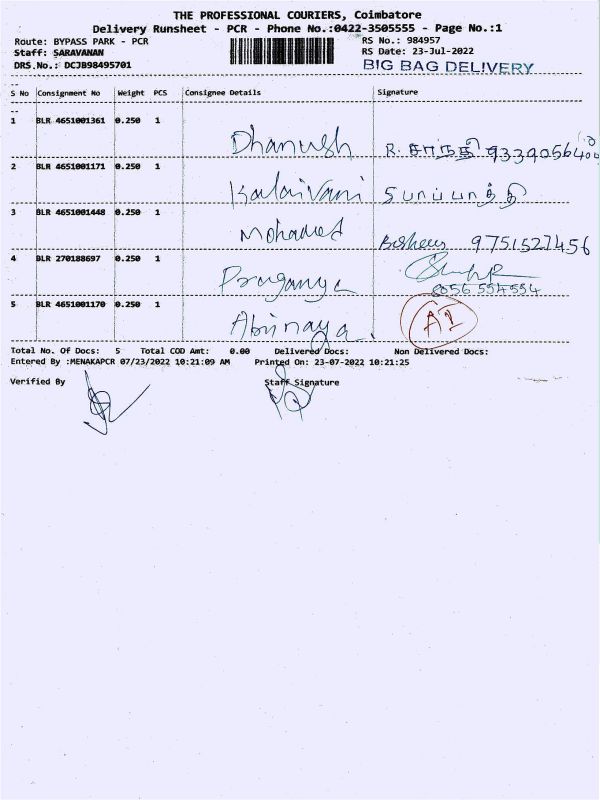 THE PROFESSIONAL COURIERS, Coimbatore
Delivery Runsheet - PCR - Phone No.:0422-3505555 - Page No.:1
Route: BYPASS PARK - PCR RS No.: 984957
Staff: SARAVANAN RS Date: 23-Jul-2022
DRS.No.: DCJB98495701 BIG BAG DELIVERY
S No Consignment No Weight PCS Consignee Details Signature
1 BLR 4651001361 0.250 1 Dhanush R. சாந்தி
2 BLR 4651001171 0.250 1 Kalaivani
3 BLR 4651001448 0.250 1 Mohamed 9751527456
4 BLR 270188697 0.250 1 Praganya 8056 554554
5 BLR 4651001170 0.250 1 Abinaya.
Total No. Of Docs: 5 Total COD Amt: 0.00 Delivered Docs: Non Delivered Docs:
Entered By :MENAKAPCR 07/23/2022 10:21:09 AM Printed On: 23-07-2022 10:21:25
Verified By Staff Signature